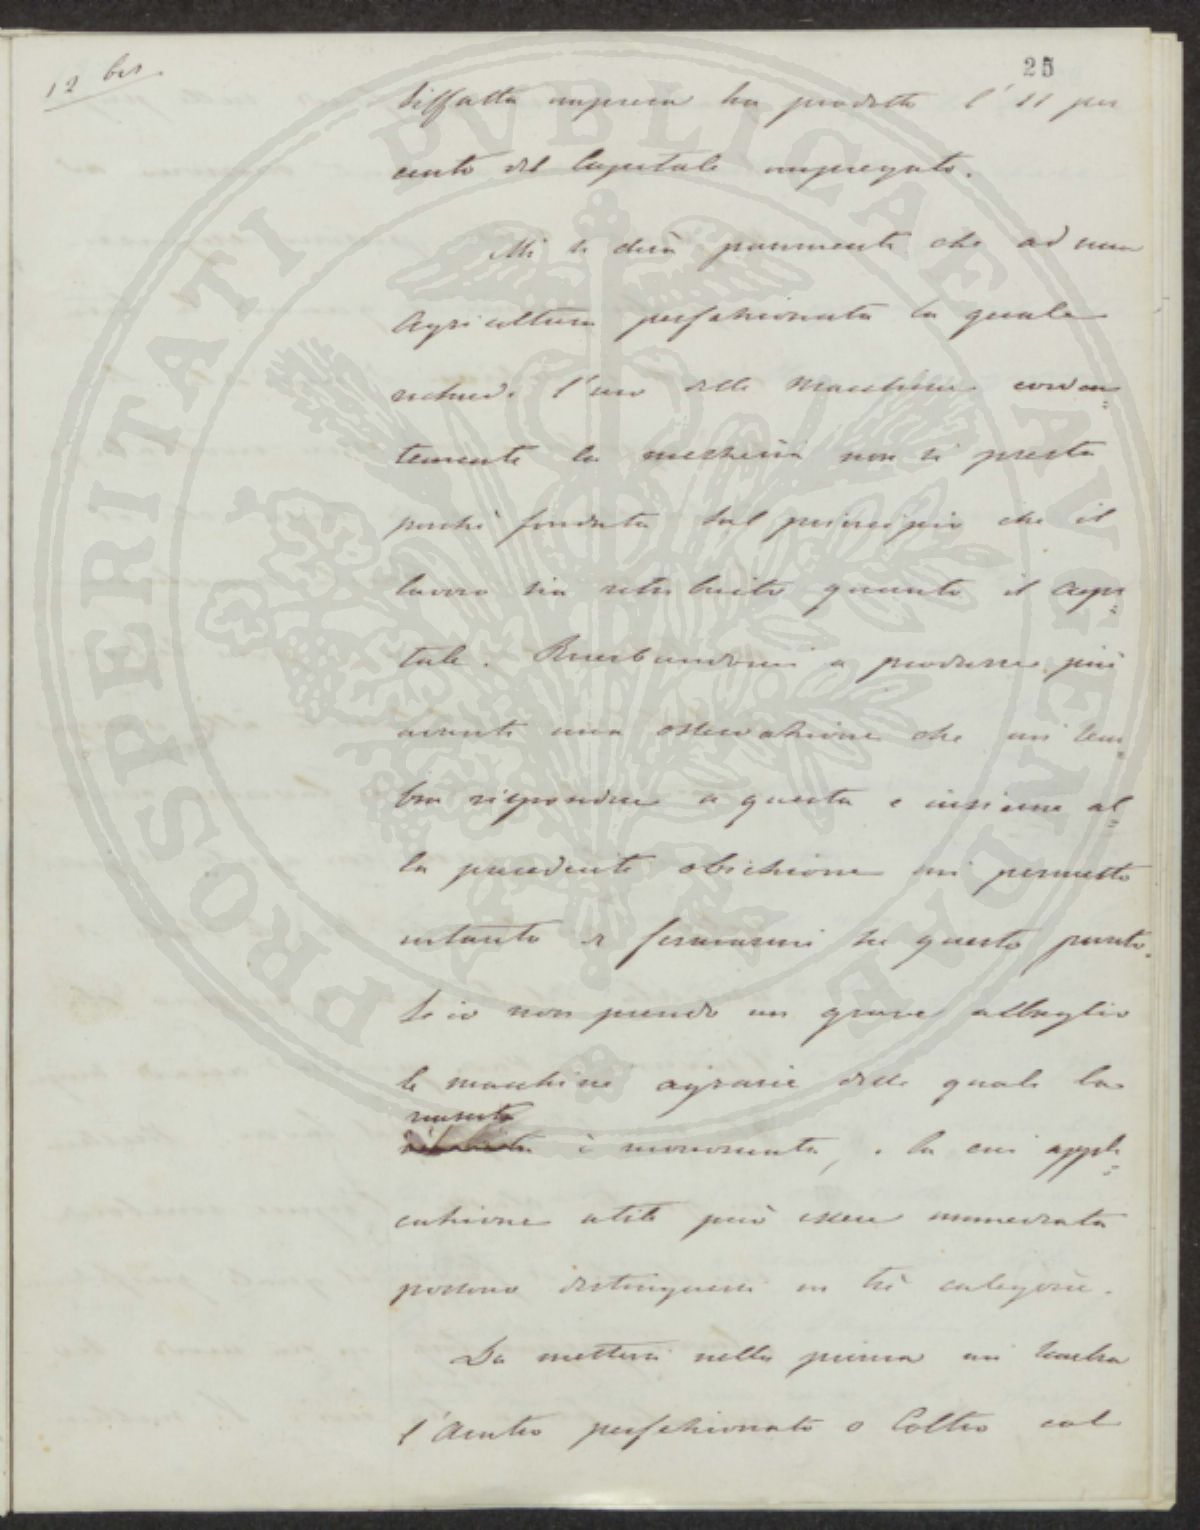 12 bis.
25
Siffatta impresa ha prodotto l'11 per
cento del Capitale impiegato.
Mi si dirà parimente che ad una
Agricoltura perfezionata la quale
richiede l'uso delle Macchine corren=
temente la mezzeria non si presta
perchè fondata sul principio che il
lavoro sia retribuito quanto il capi=
tale. Riserbandomi a produrre più
avanti una osservazione che mi sem=
bra rispondere a questa e insieme al=
la precedente obiezione mi permetto
intanto di fermarmi su questo punto.
Se io non prendo un grave abbaglio
le macchine agrarie delle quali la
riuscita
è rinomata, e la cui appli=
cazione utile può essere immediata
possono distinguersi in tre categorie.
Da mettersi nella prima mi sembra
l'Aratro perfezionato o Coltro col
PROSPERITATI PUBLICAE AUGENDAE